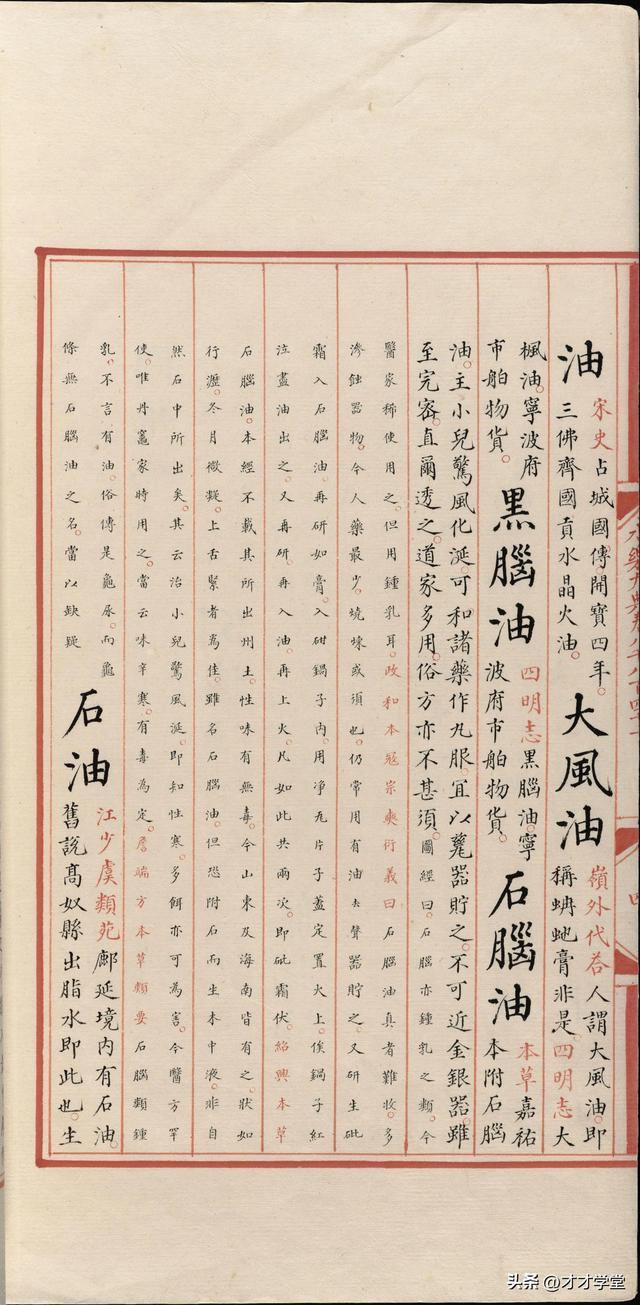 油
宋史占城國傳開寶四年。
三佛齊國貢水晶火油。
大風油
嶺外代荅人謂大風油。即
稱蚺虵膏非是。四明志大
楓油。寧波府
市舶物貨。
黑腦油
四明志黑腦油。寧
波府市舶物貨。
石腦油
本草嘉祐
本附石腦
油。主小兒驚風化涎。可和諸藥作丸服。宜以甆器貯之。不可近金銀器。雖
至完密。直爾透之。道家多用。俗方亦不甚須。圖經曰。石腦亦鍾乳之類。今
醫家稀使用之。但用鍾乳耳。政和本冦宗奭衍義曰石腦油真者難收。多
滲蝕器物。今人藥最少。燒煉或須也。仍常用有油去聲器貯之。又研生砒
霜入石腦油。再研如膏。入坩鍋子內。用净瓦片子蓋定置火上。俟鍋子紅
泣盡油出之。又再研。再入油。再上火。凡如此共兩次。即砒霜伏。紹興本草
石腦油。本經不載其所出州土。性味有無毒。今山東及海南皆有之。狀如
行瀝。冬月微凝。上舌緊者為佳。雖名石腦油。但恐附石而生本中液。非自
然石中所出矣。其云治小兒驚風涎。即知性寒。多餌亦可為害。今醫方罕
使。唯丹竈家時用之。當云味辛寒。有毒為定。詹端方本草類要石腦類鍾
乳。不言有油。俗傳是龜尿。而龜
條無石腦油之名。當以缺疑
石油
江少虞類苑鄜延境內有石油。
舊說高奴縣出脂水即此也。生
头条 @才才学堂